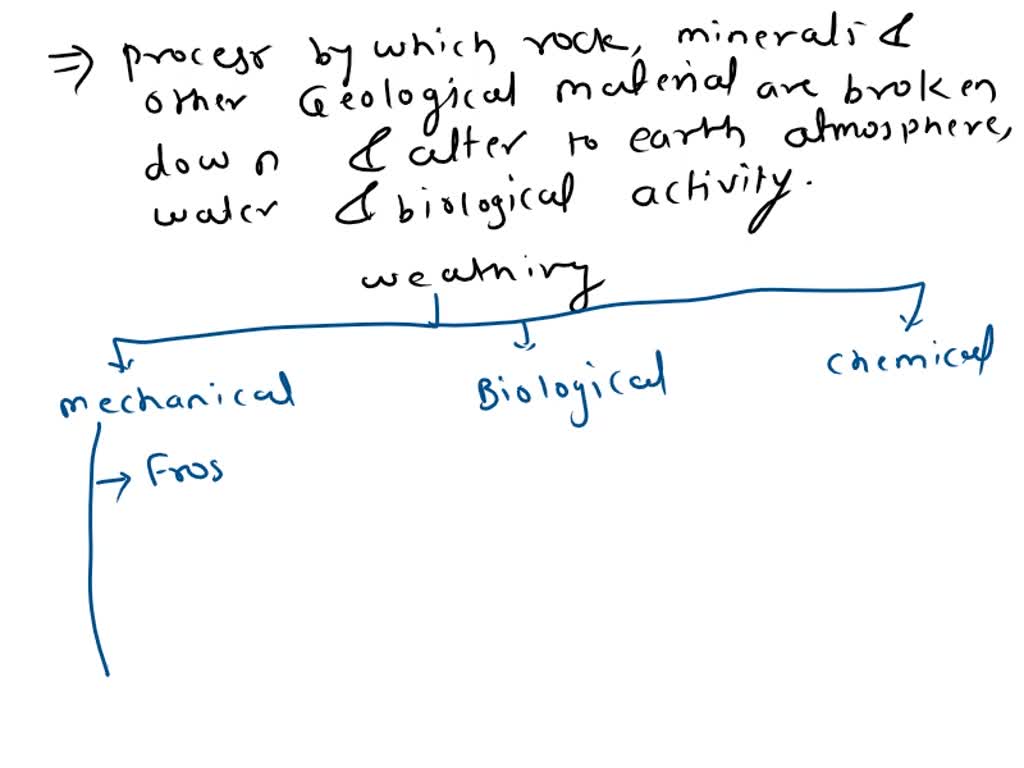 ⇒ process by which rock, minerals &
other Geological material are broken
down & alter to earth atmosphere,
water & biological activity.
weathiry
mechanical Biological chemical
→ Fros